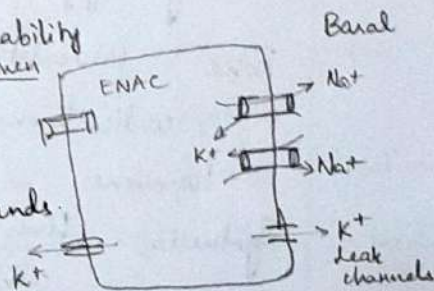 ability
men
Basal
ENAC
Na+
K+
Na+
unds.
K+
K+
Leak
channels